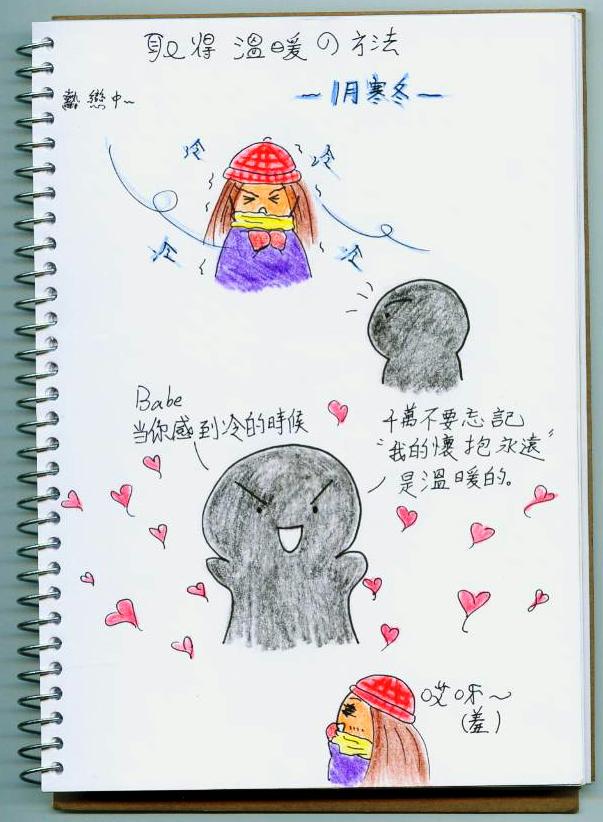 取得溫暖の方法
熱戀中~
~1月寒冬~
冷
冷
冷
冷
Babe
當你感到冷的時候
千萬不要忘記
"我的懷抱永遠"
是溫暖的。
哎呀~
(羞)